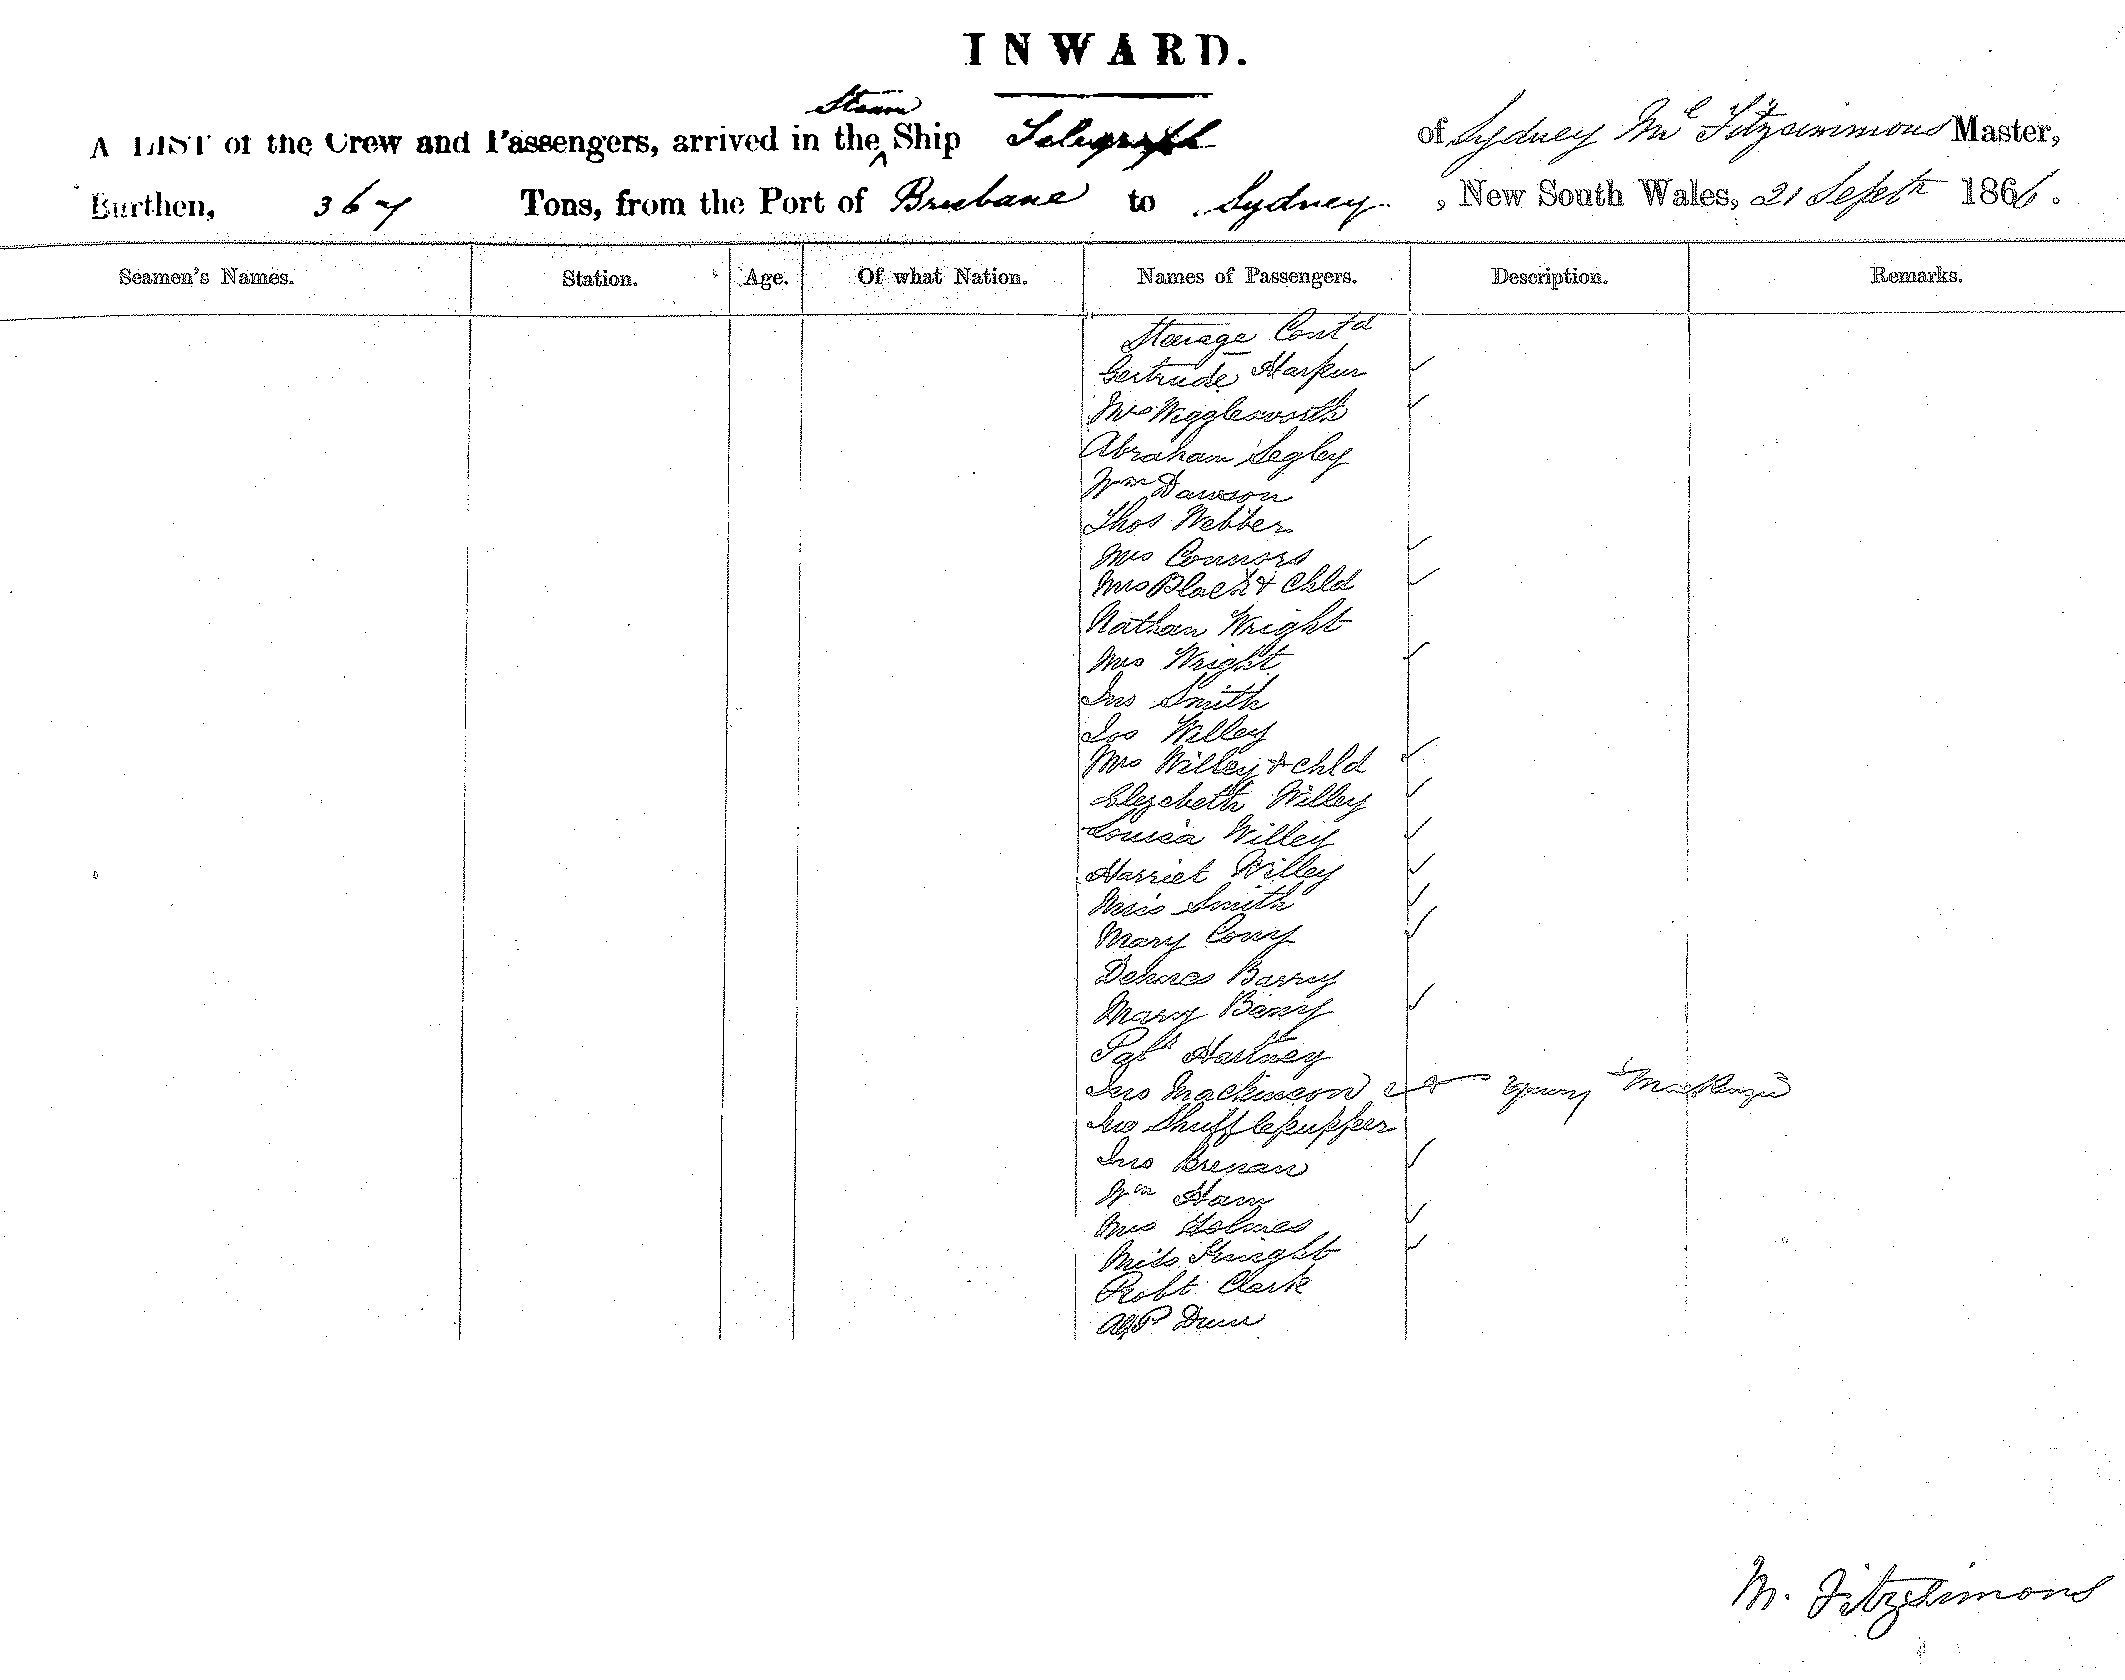 INWARD.
Steam
A LIST of the Crew and Passengers, arrived in the ^ Ship Telegraph of Sydney Mc Fitzsimmons Master,
Burthen, 367 Tons, from the Port of Brisbane to Sydney , New South Wales, 21 Septr 1866.
Seamen's Names. Station. Age. Of what Nation. Names of Passengers. Description. Remarks.
Starage Contd
Gertrude Harpur
Mrs Wigglesworth
Abraham Segley
Wm Dawson
Thos Webber
Mrs Connors
Mrs Black & Chld
Nathan Wright
Mrs Wright
Jno Smith
Jos Willey
Mrs Willey & chld
Elezebeth Willey
Louisa Willey
Harriet Willey
Miss Smith
Mary Cony
Dennes Barry
Mary Barry
Patk Hartney
Jno Mackinson & Young Mackenzie
Jno Shufflepupper
Jno Brenan
Wm Ham
Mrs Holmes
Miss Knight
Robt Clark
Dunn
M. Fitzsimons